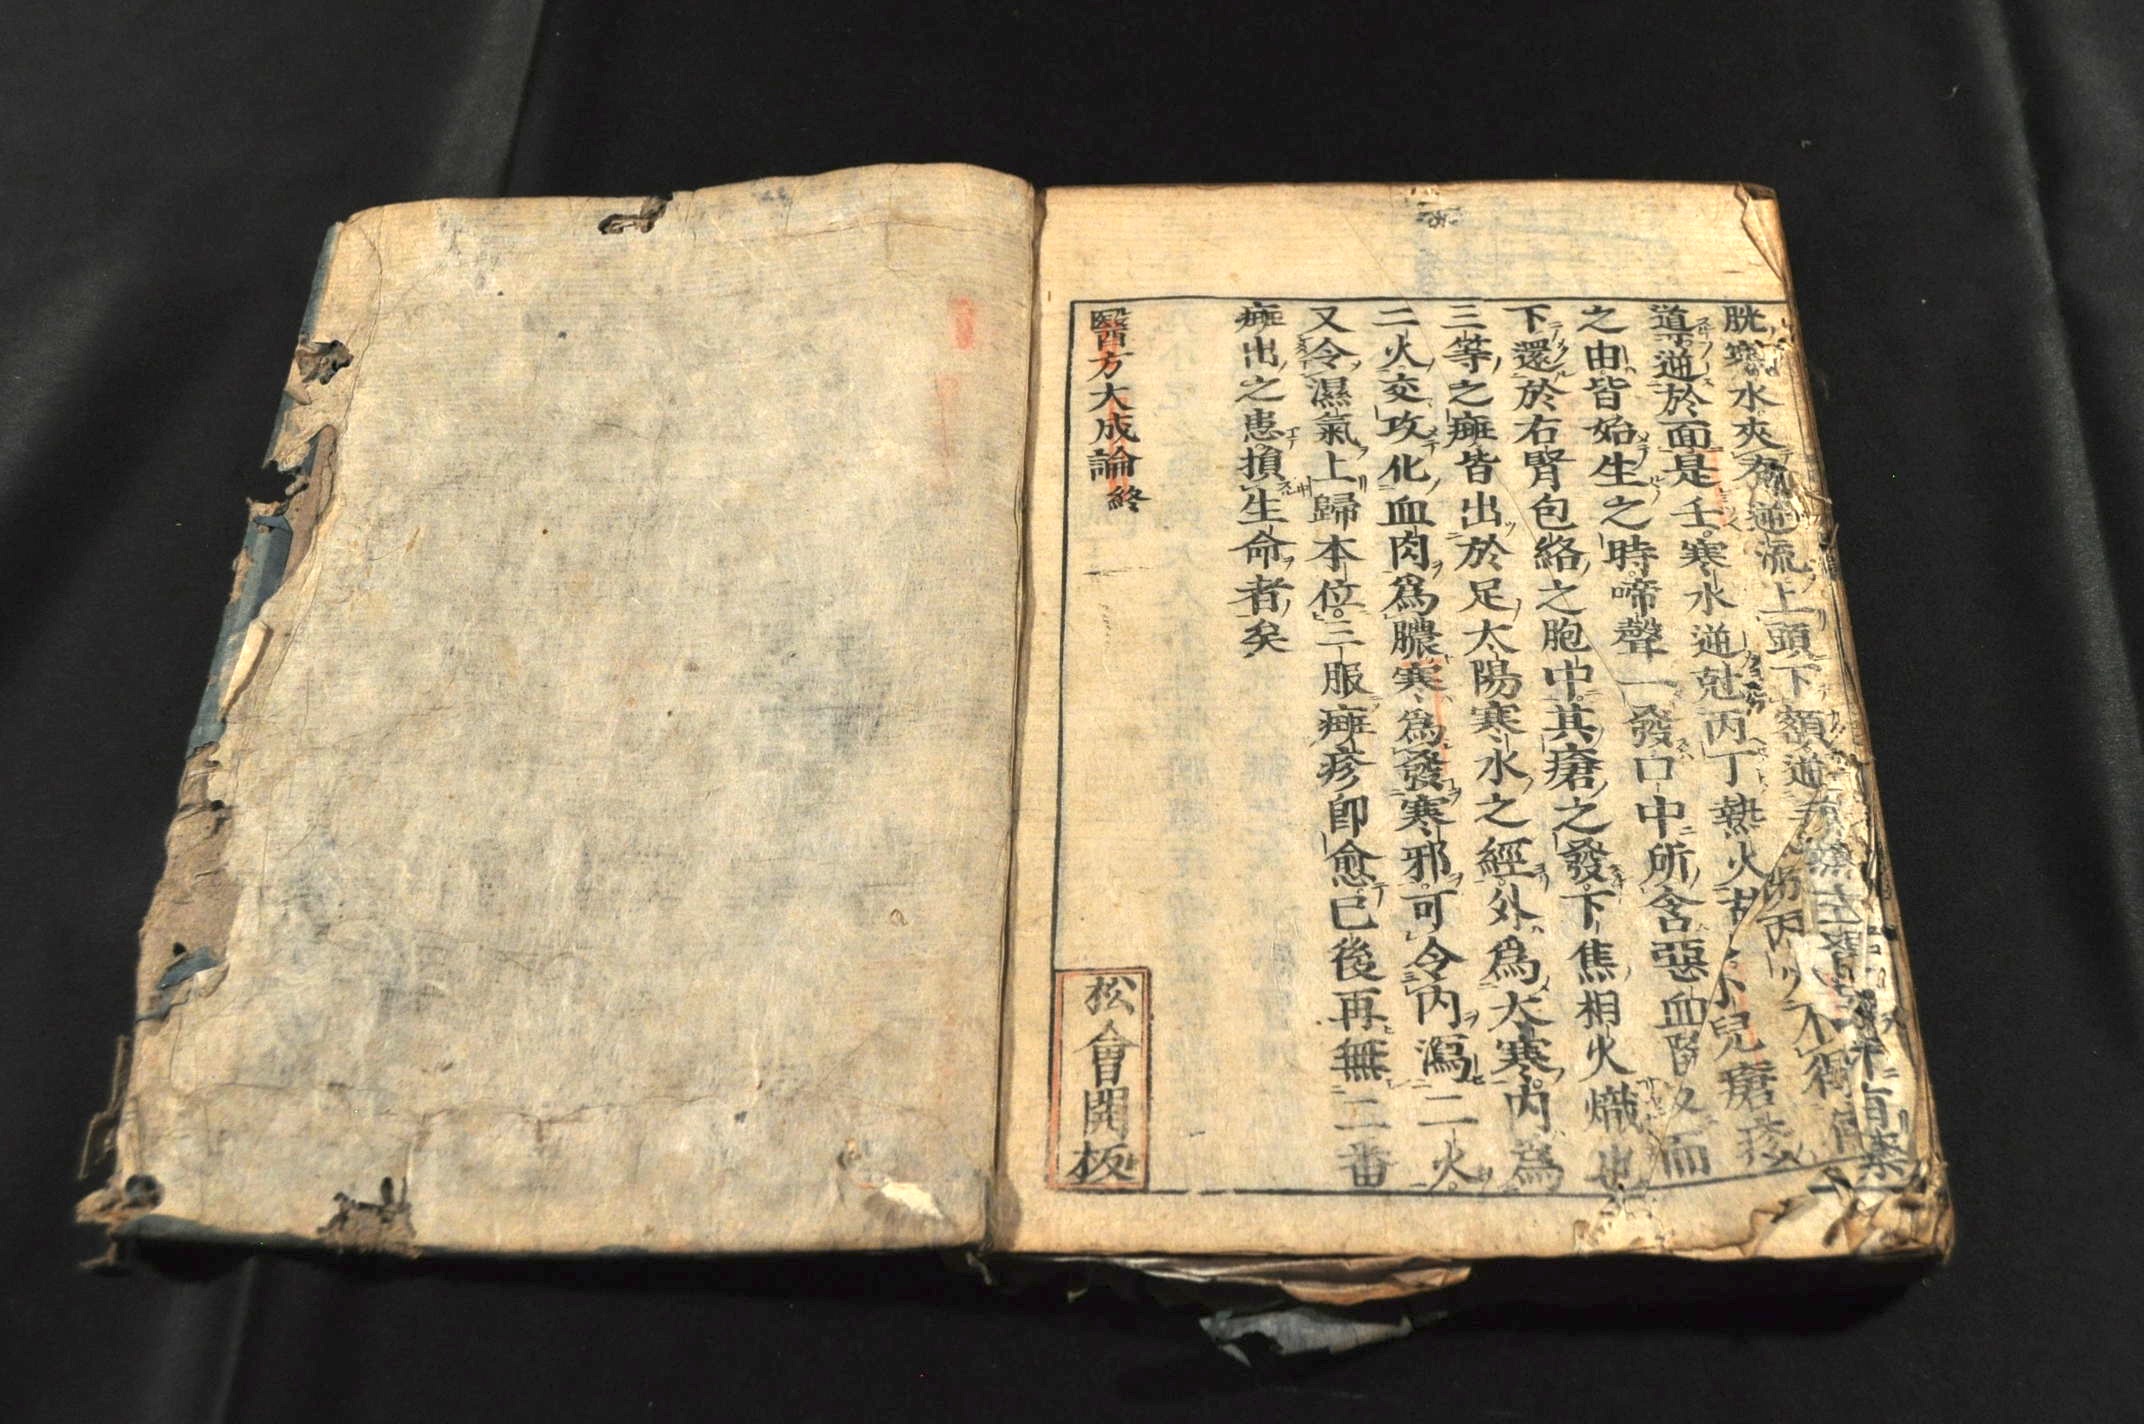 胱寒水夾脊逆流上頭下額逆
道逆於面是壬寒水逆尅丙丁熱火小兒瘡疹
之由皆始生之時啼聲一發口中所含惡血隨而
下還於右腎包絡之胞中其瘡之發下焦相火熾也
三等之癍皆出於足太陽寒水之經外爲大寒內爲
二火交攻化血肉爲膿寒爲發寒邪可令內瀉二火
又令濕氣上歸本位三服癍疹即愈已後再無二番
癍出之患損生命者矣
醫方大成論終
松會開板